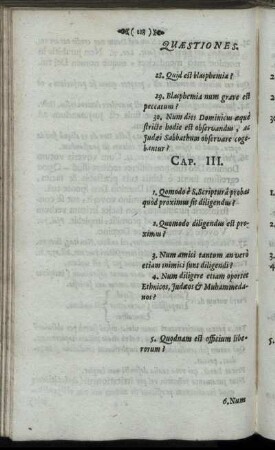 ( 118 )
QUÆSTIONES.
28. Quid est blasphemia?
29. Blasphemia num grave est
peccatum?
30. Num dies Dominicus æquè
strictè hodie est observandus, ac
Judæi Sabbathum observare coge-
bantur?
CAP. III.
1. Qomodo è S. Scripturâ probas
quòd proximus sit diligendus?
2. Quomodo diligendus est pro-
ximus?
3. Num amici tantum an verò
etiam inimici sunt diligendi?
4. Num diligere etiam oportet
Ethnicos, Judæos & Muhammeda-
nos?
5. Quodnam est officium libe-
rorum?
6. Num